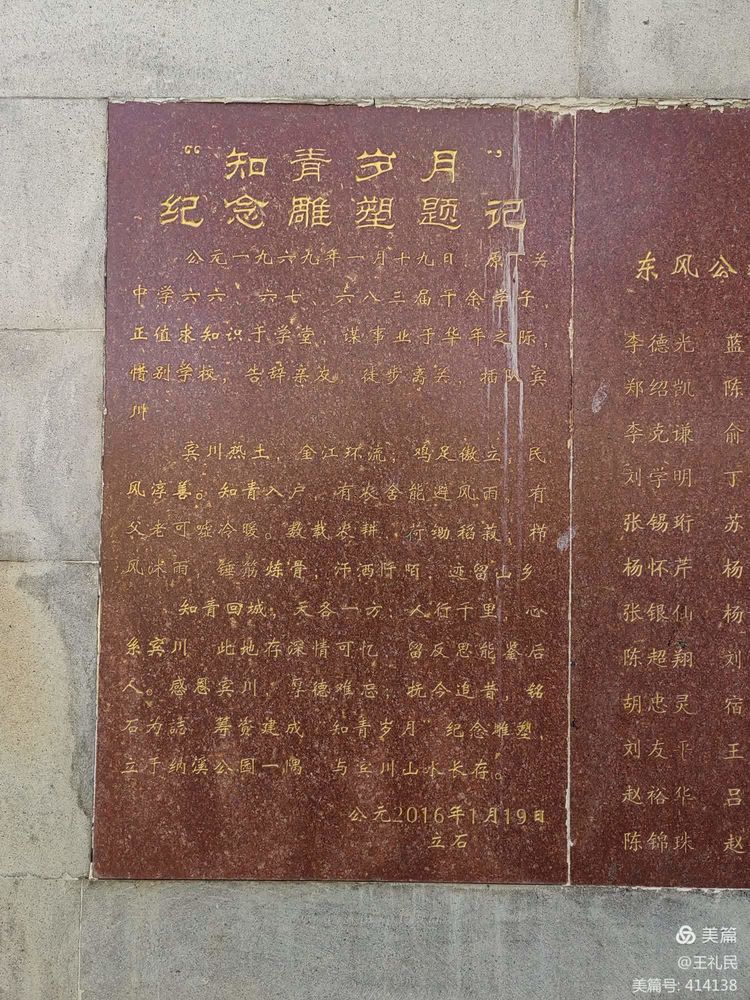 “知青岁月”
纪念雕塑题记
公元一九六九年一月十九日，原下关
中学六六、六七、六八三届千余学子，
正值求知识于学堂，谋事业于华年之际，
惜别学校，告辞亲友，徒步离关，插队宾
川
宾川热土，金江环流，鸡足傲立，民
风淳善。知青入户，有农舍能避风雨，有
父老可嘘冷暖。数载农耕，荷锄稻菽，栉
风沐雨，锤筋炼骨，汗洒阡陌，迹留山乡
知青回城，天各一方，人行千里，心
系宾川 此地存深情可忆，留反思能鉴后
人。感恩宾川，厚德难忘；抚今追昔，铭
石为志 筹资建成 知青岁月”纪念雕塑，
立于纳溪公园一隅 与宾川山水长存。
公元2016年1月19日
立石
东风公
李德光 蓝
郑绍凯 陈
李克谦 俞
刘学明 丁
张锡珩 苏
杨怀芹 杨
张银仙 杨
陈超翔 刘
胡忠灵 宿
刘友 王
赵裕华 吕
陈锦珠 赵
美篇
@王礼民
美篇号: 414138